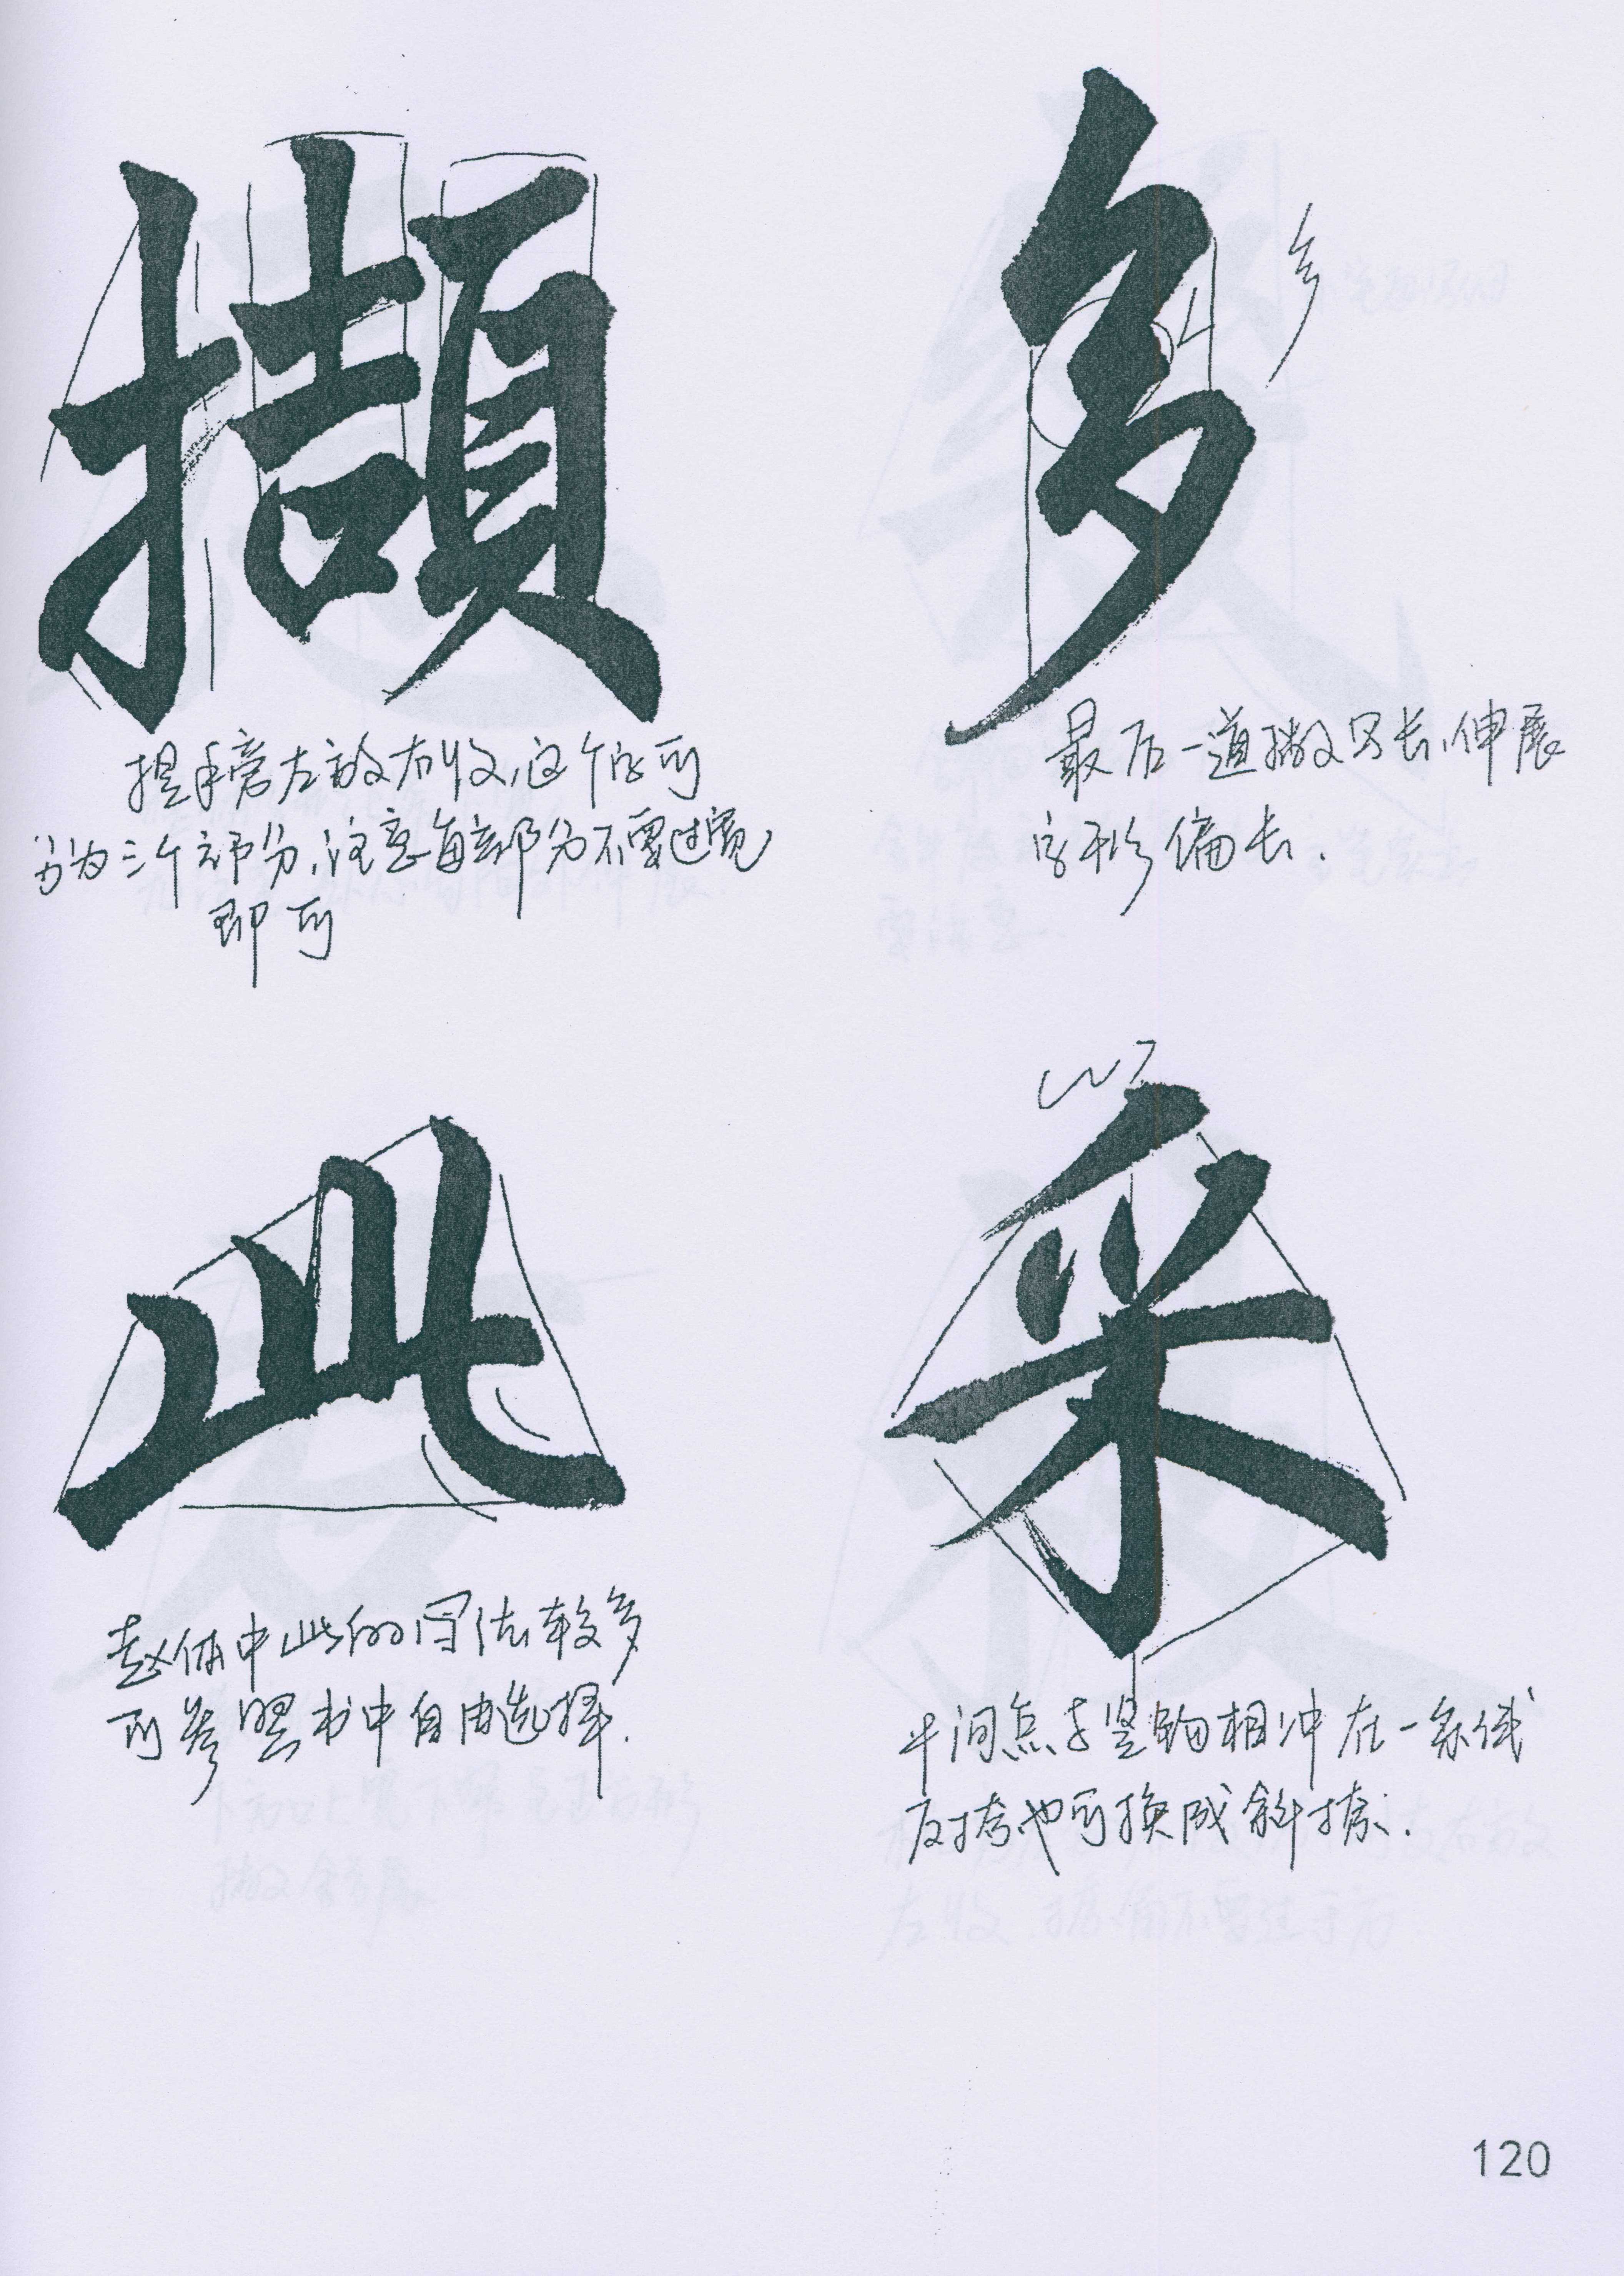 撷
提手旁左放右收,这个字可
分为三个部分,注意每部分不要过宽
即可
多
最后一道撇写长,伸展
字形偏长.
此
赵体中此的写法较多
可参照书中自由选择.
采
中间点与竖钩相冲在一条线
反捺也可换成斜捺.
120